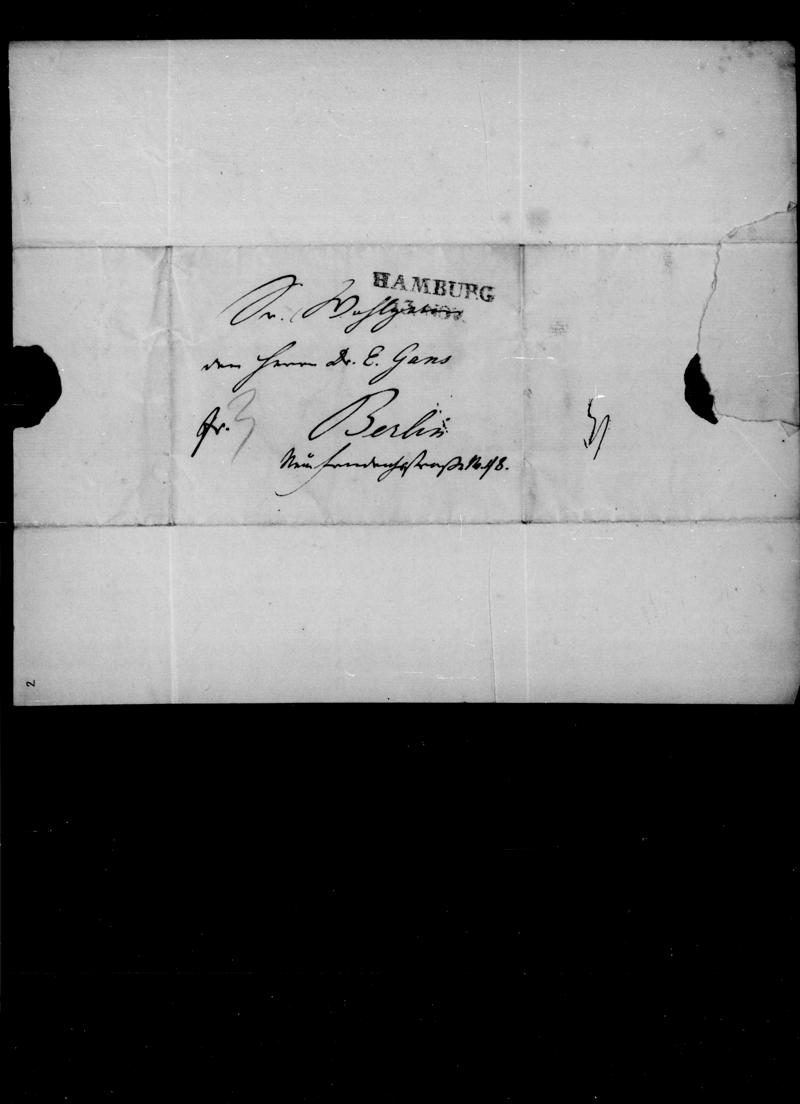 HAMBURG
Sr. Wohlgeboren
den Herrn Dr. E. Gans
fr. 3 Berlin
Neue Friedrichsstraße No. 48.
2